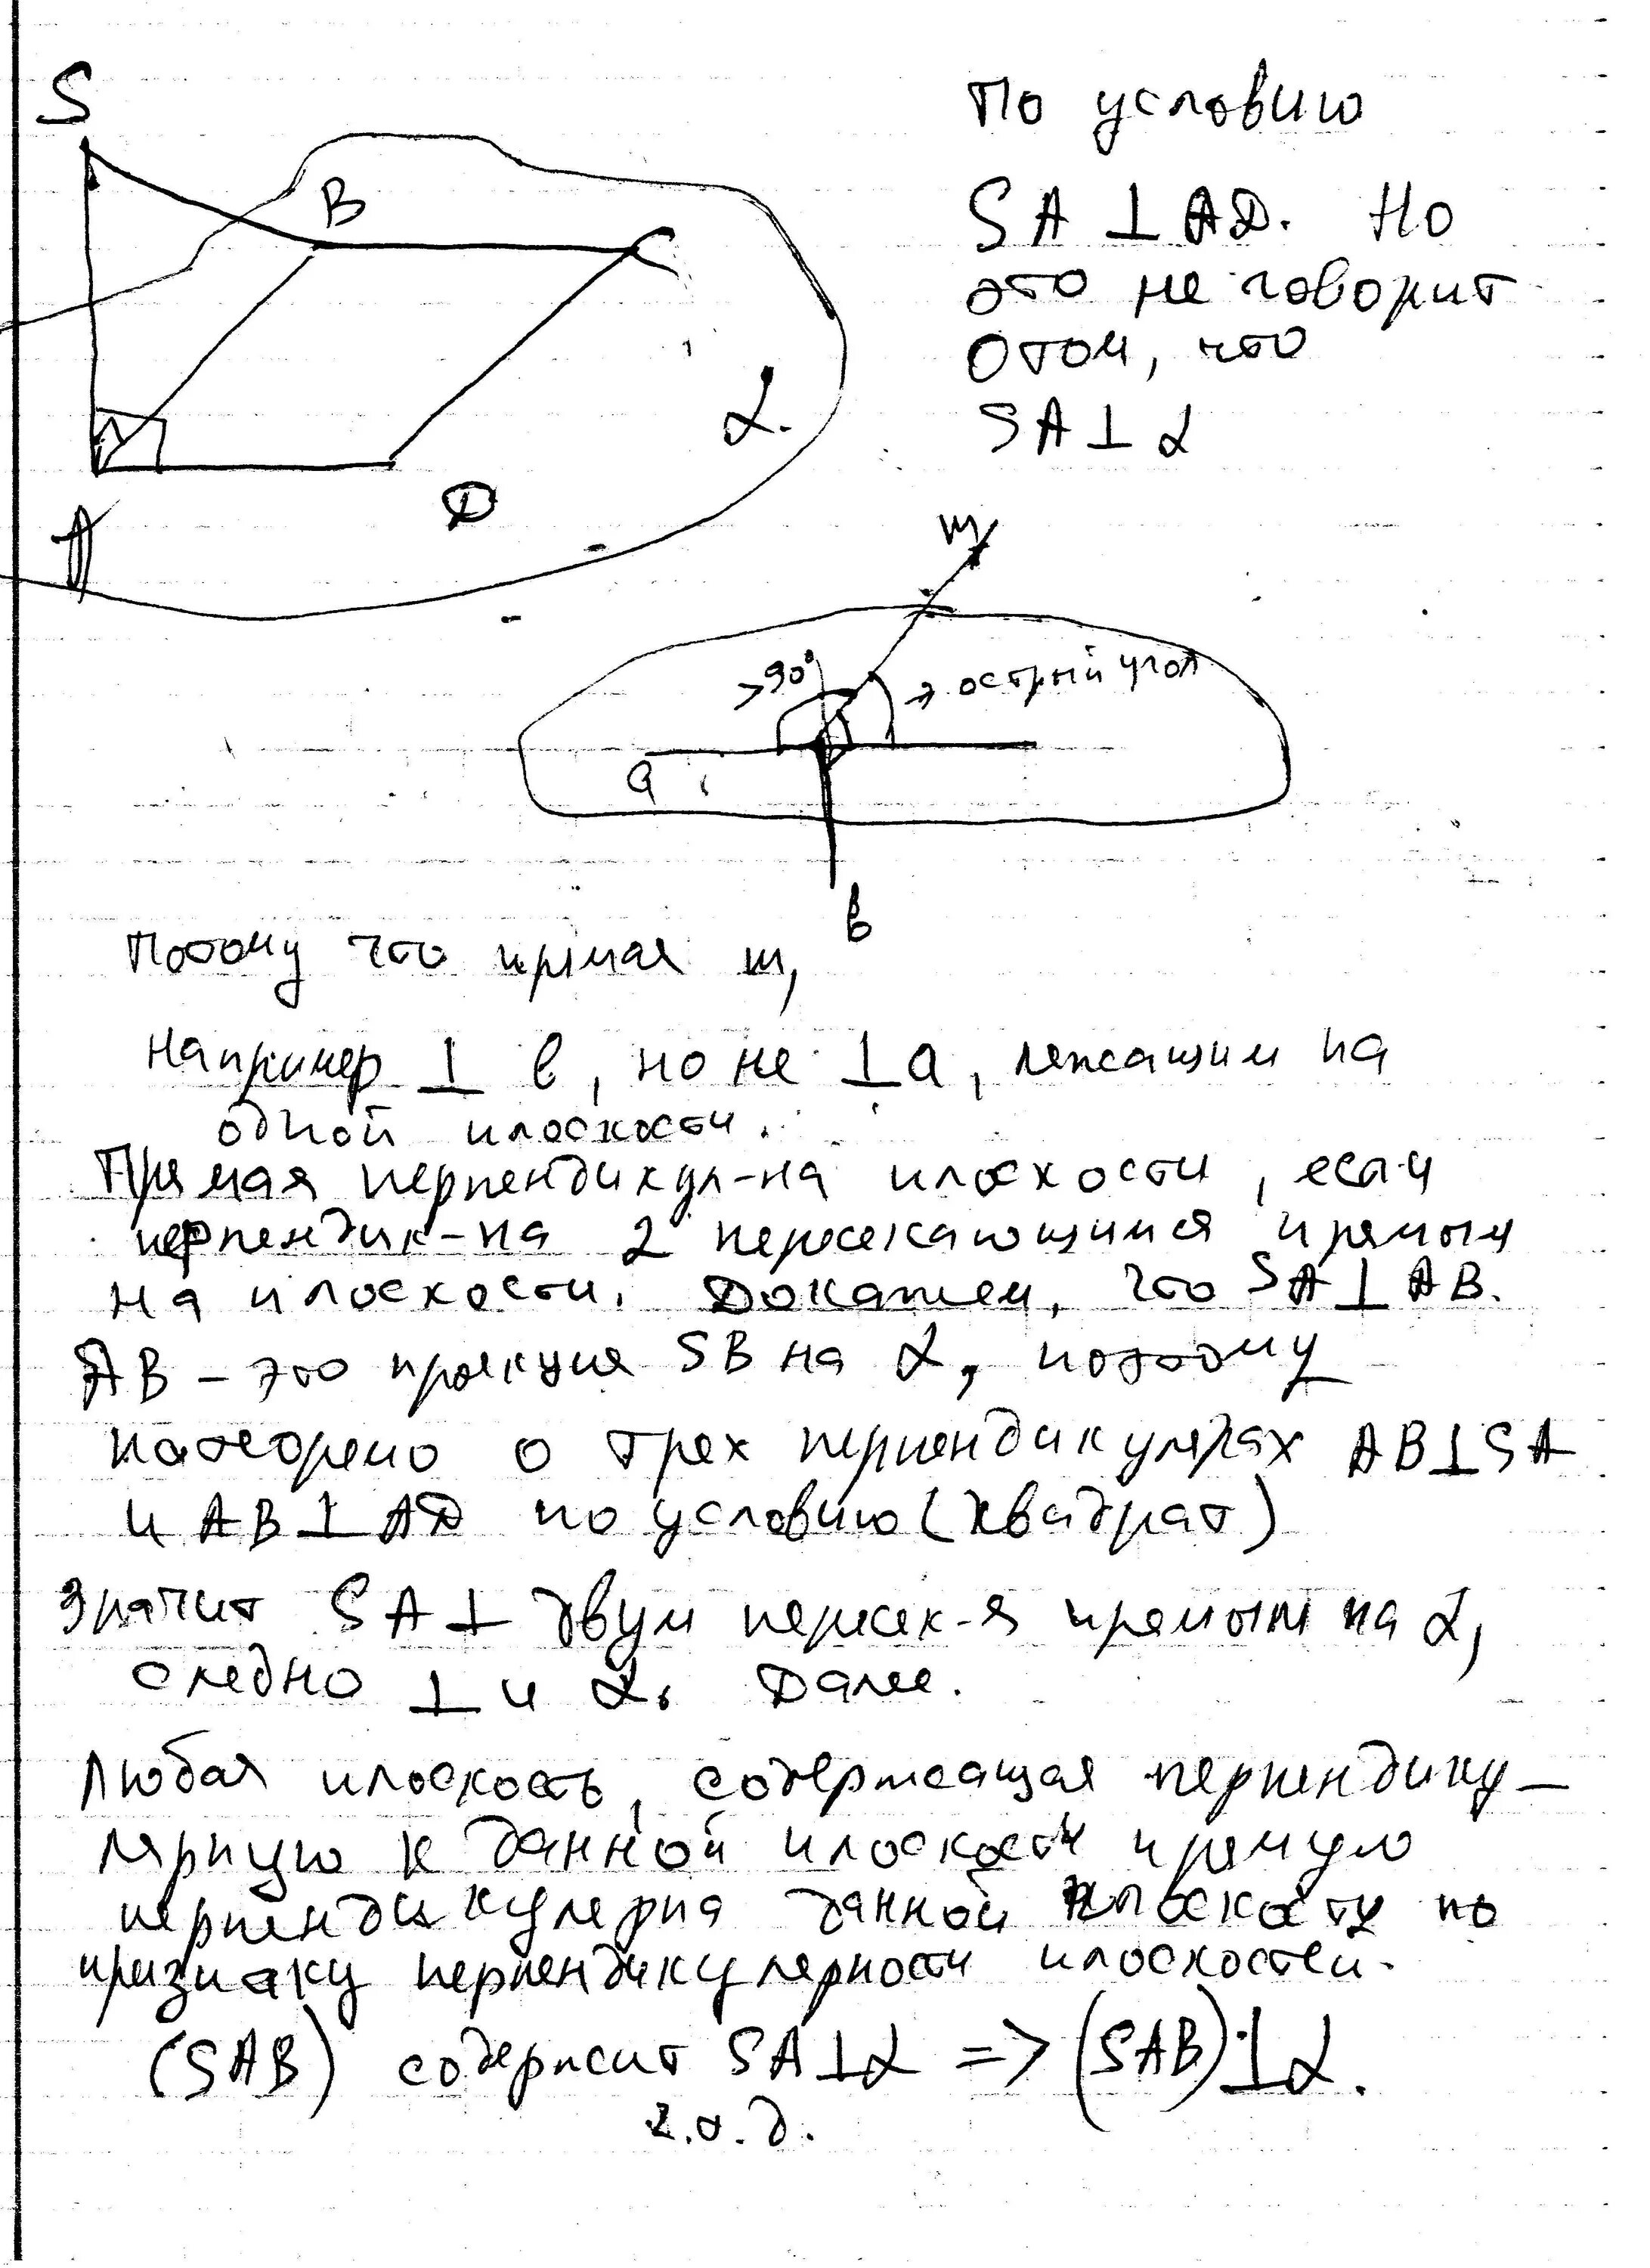 S
B
C
α.
A
D
По условию
SA ⊥ AD. Но
это не говорит
о том, что
SA ⊥ α
m
>90°
→ острый угол
a
в
Потому что прямая m,
Например ⊥ в, но не ⊥ a, лежащим на
одной плоскости.
Прямая перпендикул-на плоскости, если
перпендик-на 2 пересекающимся прямым
на плоскости. Докажем, что SA ⊥ AB.
AB – это проекция SB на α, поэтому
потеореме о трех перпендикулярах AB⊥SA
и AB ⊥ AD по условию (квадрат)
Значит SA ⊥ двум пересек-я прямым на α,
следно ⊥ и α. Далее.
Любая плоскость, содержащая перпендику-
лярную к данной плоскости прямую
перпендикулярна данной плоскости по
признаку перпендикулярности плоскостей.
(SAB) содержит SA⊥α => (SAB)⊥α.
ч.т.д.